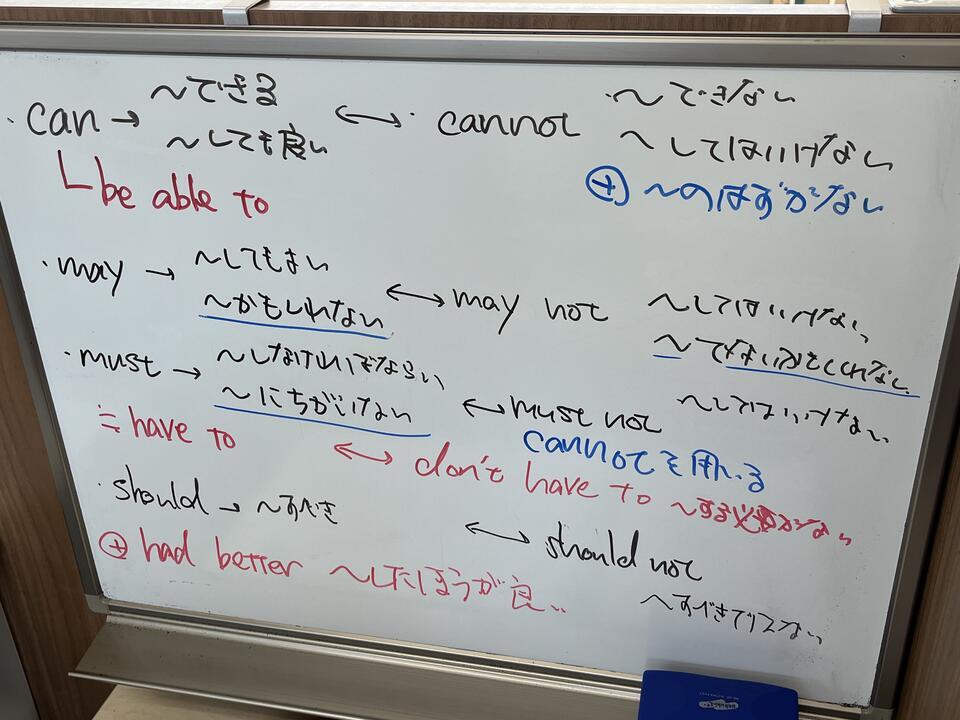 ・can → 〜できる ←→ ・cannot 〜できない
〜しても良い 〜してはいけない
be able to ⊕ 〜のはずがない
・may → 〜してもよい ←→ may not 〜してはいけない
〜かもしれない 〜でないかもしれない
・must → 〜しなければならない ←→ must not 〜してはいけない
〜にちがいない cannotを用いる
≒ have to ←→ don't have to 〜する必要がない
・should → 〜すべき ←→ should not
⊕ had better 〜したほうが良い 〜すべきでない